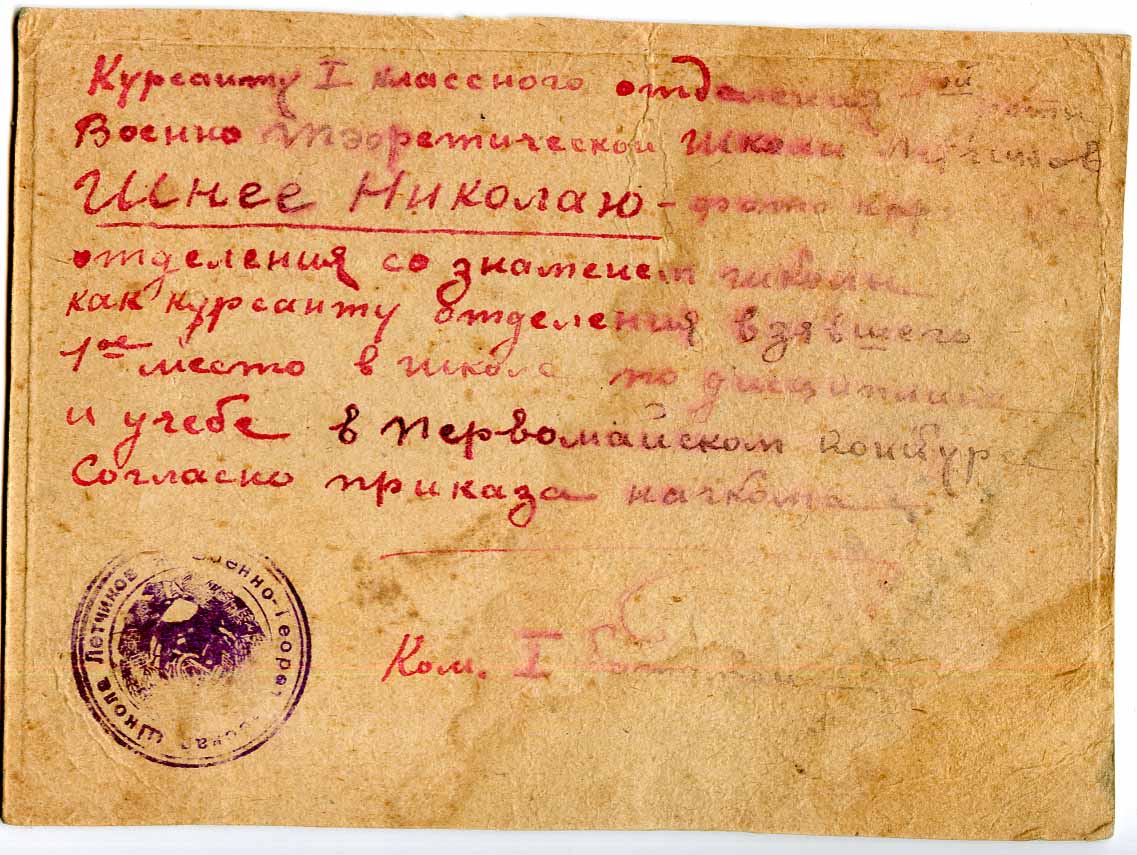 Курсанту I классного отделения 1ой роты
Военно Теоретической Школы Летчиков
Шнее Николаю - фото кар
отделения со знаменем школы
как курсанту отделения взявшего
1ое место в школе по дисциплине
и учебе в Первомайском конкурсе
Согласно приказа начкома
Ком. I
Военно-Теоретическая Школа Летчиков